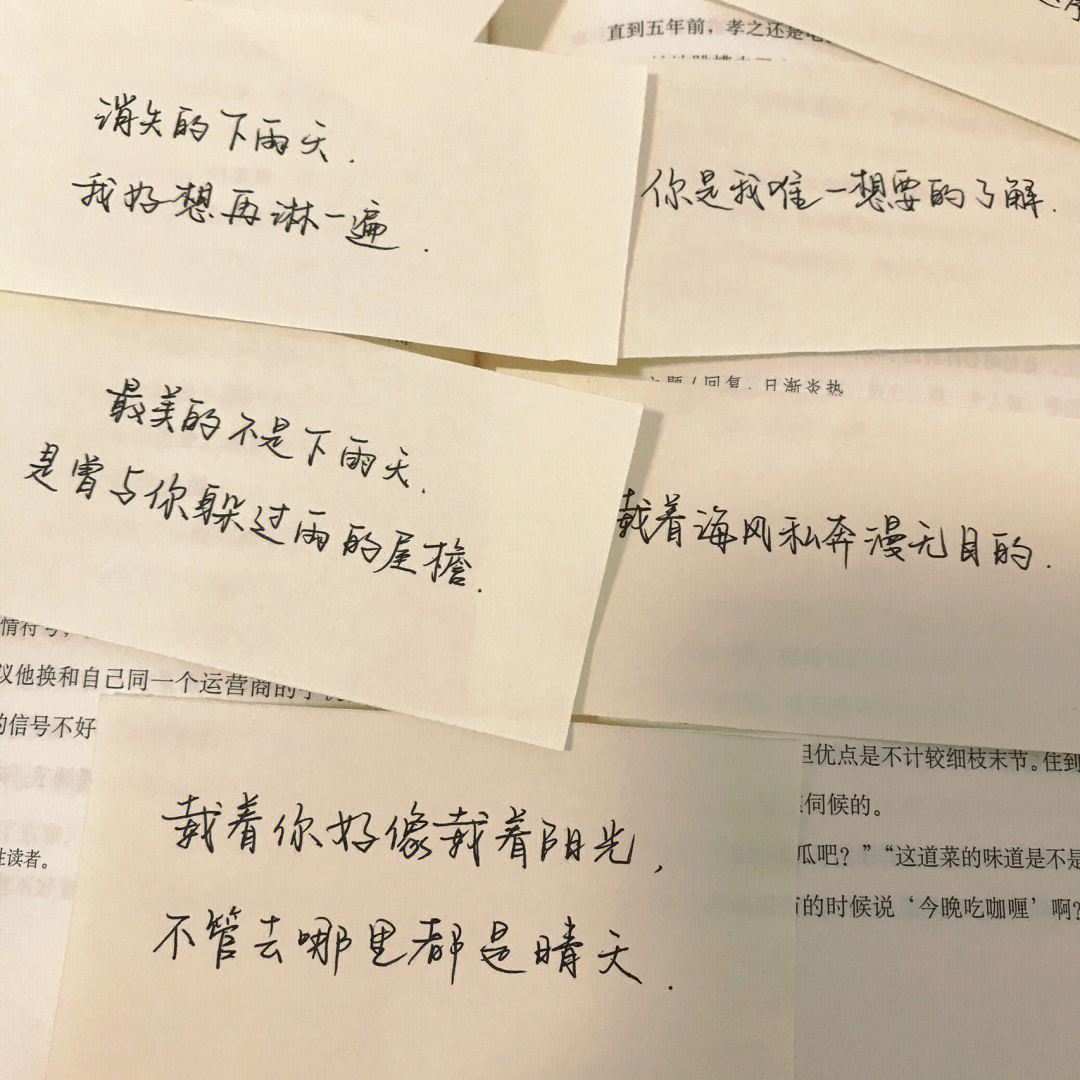 直到五年前，孝之还是
消失的下雨天.
我好想再淋一遍.
你是我唯一想要的了解.
回复，日渐炎热
最美的不是下雨天.
是曾与你躲过雨的屋檐.
载着海风私奔漫无目的.
情符号，
议他换和自己同一个运营商的手机
的信号不好
但优点是不计较细枝末节。住到
伺候的。
读者。
瓜吧？”“这道菜的味道是不是
的时候说‘今晚吃咖喱’啊？
载着你好像载着阳光，
不管去哪里都是晴天.